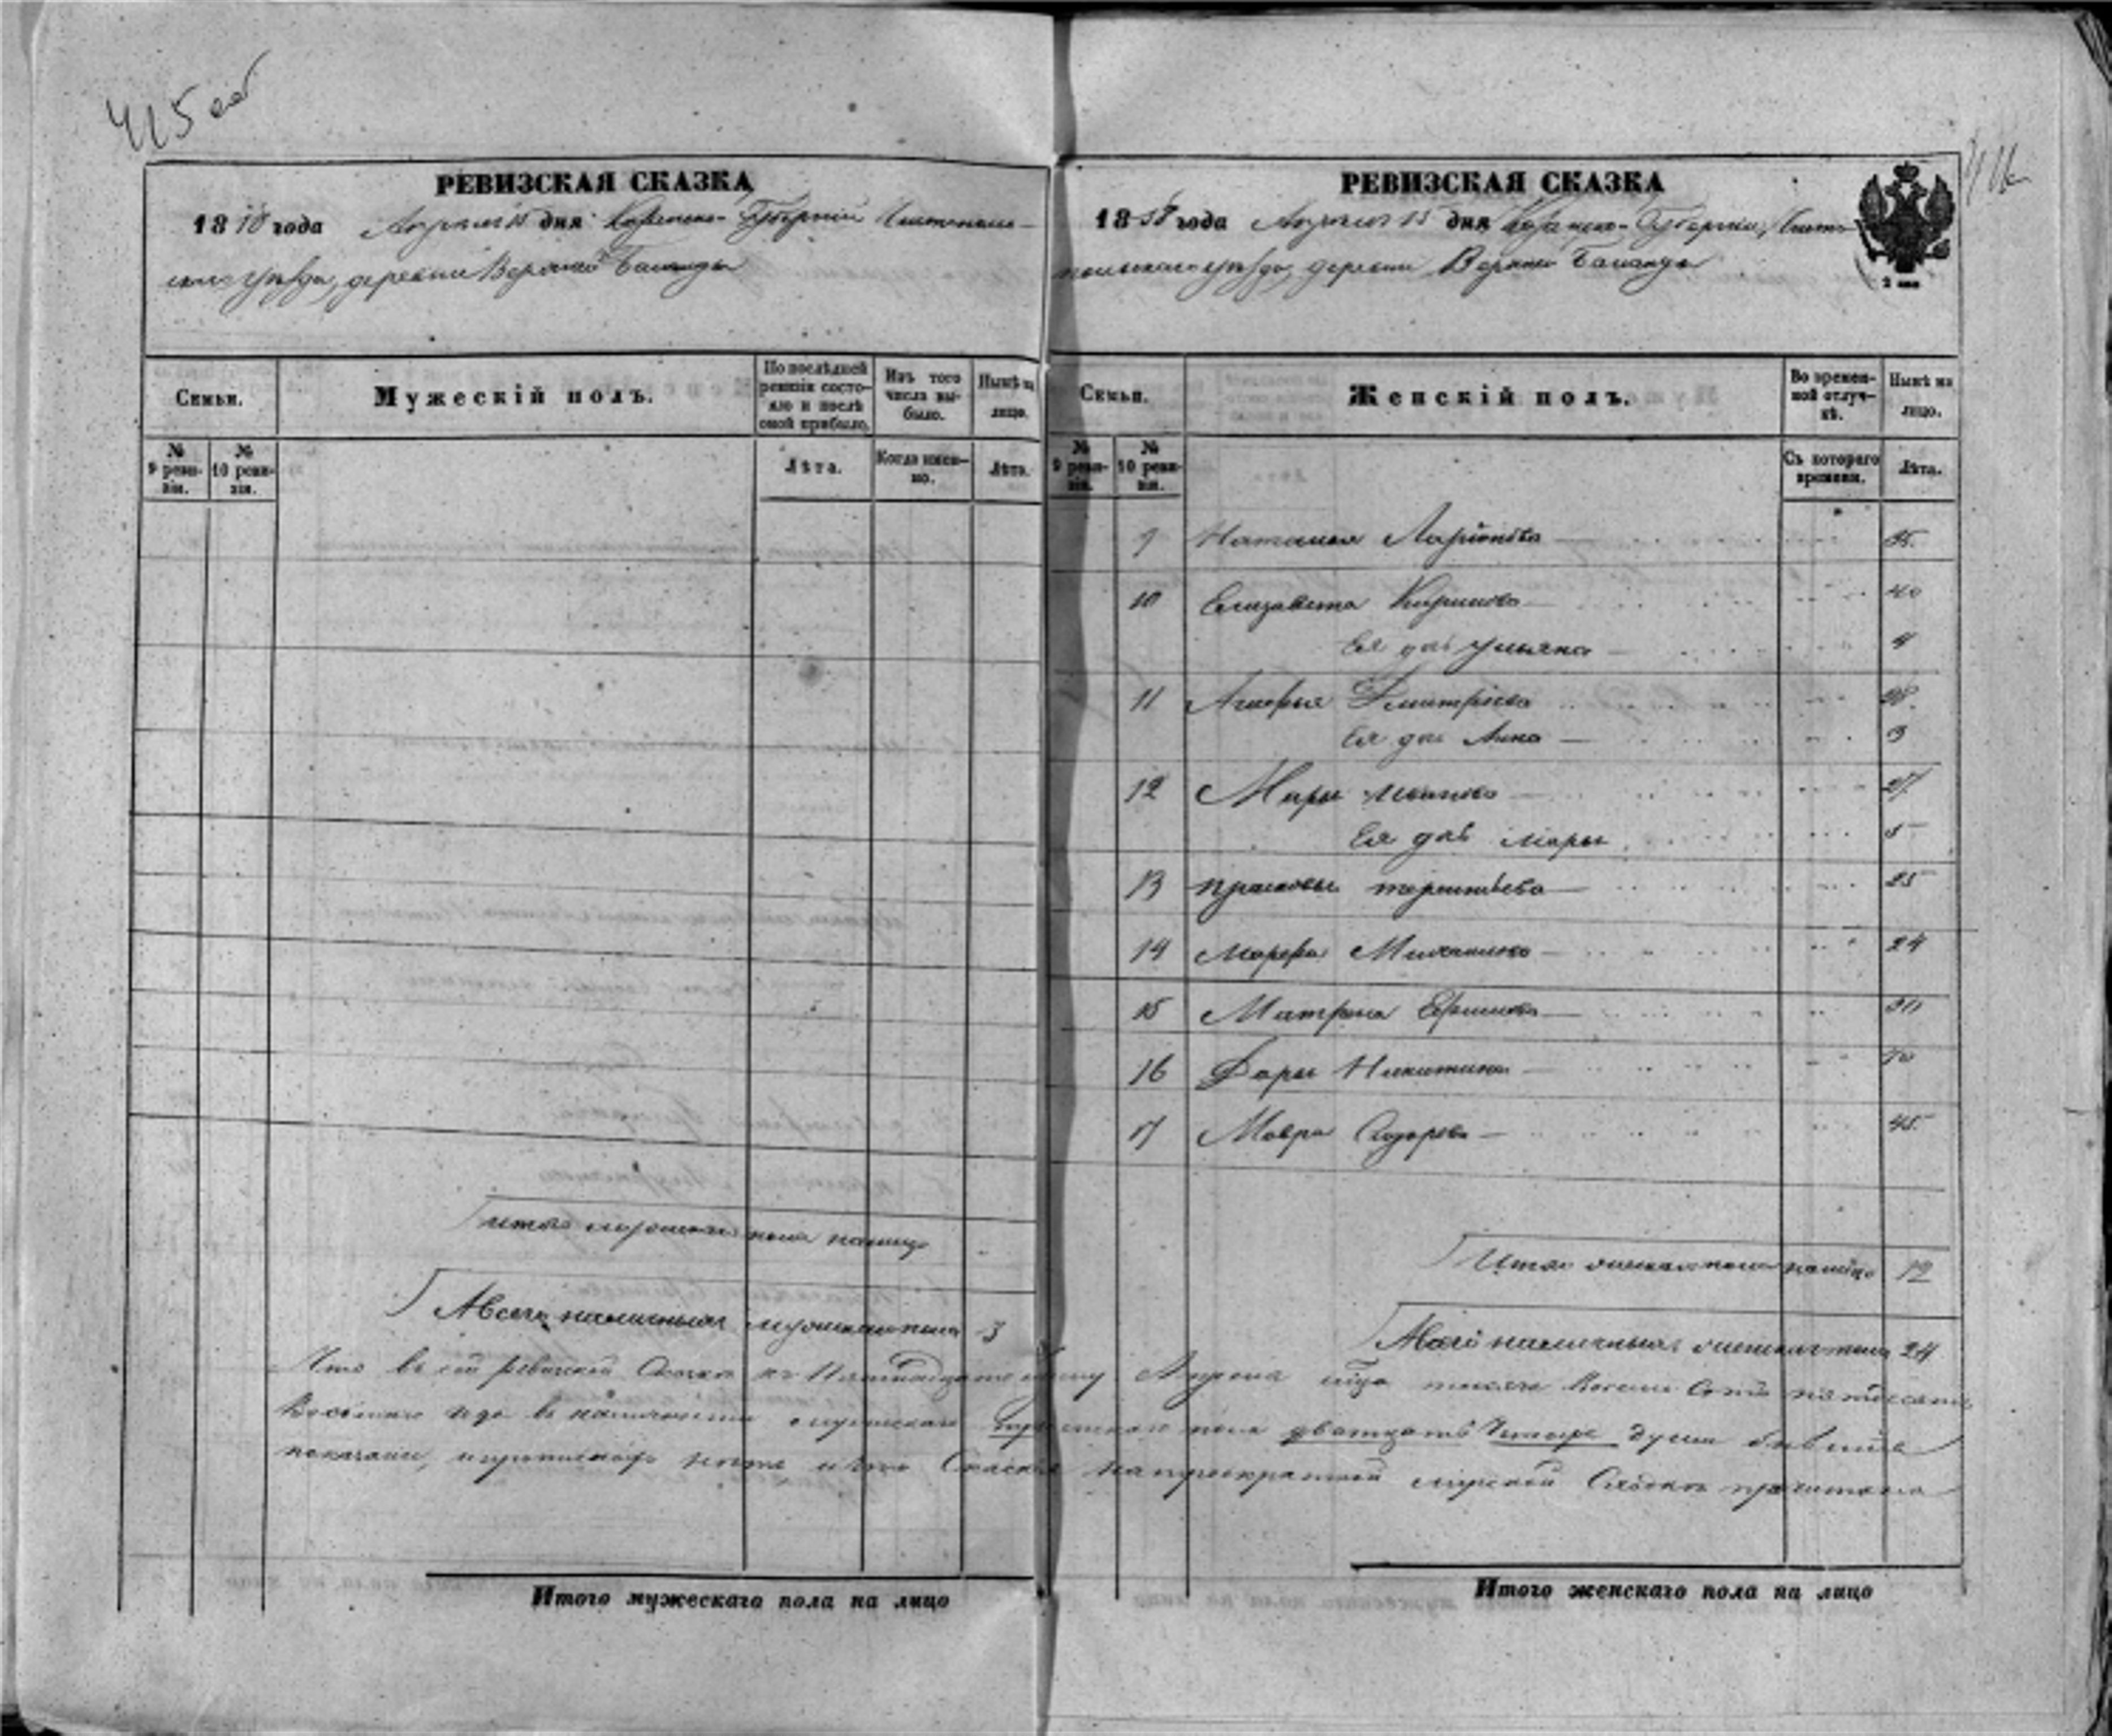 415 об
РЕВИЗСКАЯ СКАЗКА
1858 года Апреля 15 дня Казанской Губернии Чистополь-
скаго уѣзда, деревни Верхней Баланды
Семьи.
Мужескій полъ.
По послѣдней ревизіи состояло и послѣ оной прибыло.
Изъ того числа выбыло.
Нынѣ на лицо.
№ 9 ревизіи.
№ 10 ревизіи.
Лѣта.
Когда именно.
Лѣта.
Итого мужеска пола на лицо -
А всего наличныхъ мужеска пола 3
Итого мужескаго пола на лицо
416
РЕВИЗСКАЯ СКАЗКА
1858 года Апреля 15 дня Казанской Губернии, Чисто-
польскаго уѣзда, деревни Верхней Баланды
Семьи.
Женскій полъ.
Во временной отлучкѣ.
Нынѣ на лицо.
№ 9 ревизіи.
№ 10 ревизіи.
Съ котораго времени.
Лѣта.
9 Наталья Ларіонова
10 Елизавета Кирилова 40
Ея дочь Ульяна 4
11 Дмитріева
Ея дочь Анна 3
12 Марья Иванова 27
Ея дочь Марья 5
13 Прасковья Терентьева 25
14 Марфа Михайлова 24
15 Матрена
16 Дарья Никитина
17 Мавра Сидорова 45
Итого женска пола на лицо 12
А всего наличныхъ женска пола 24
Что въ сей ревизской Сказке къ Пятнадцатому Апреля тысяча Восемь Сотъ пятьдесятъ
Восьмаго года въ наличности мужескаго женскаго пола двадцать Четыре души
показаны, и прописныхъ нетъ и что Сказка на мирской Сходке прочитана
Итого женскаго пола на лицо